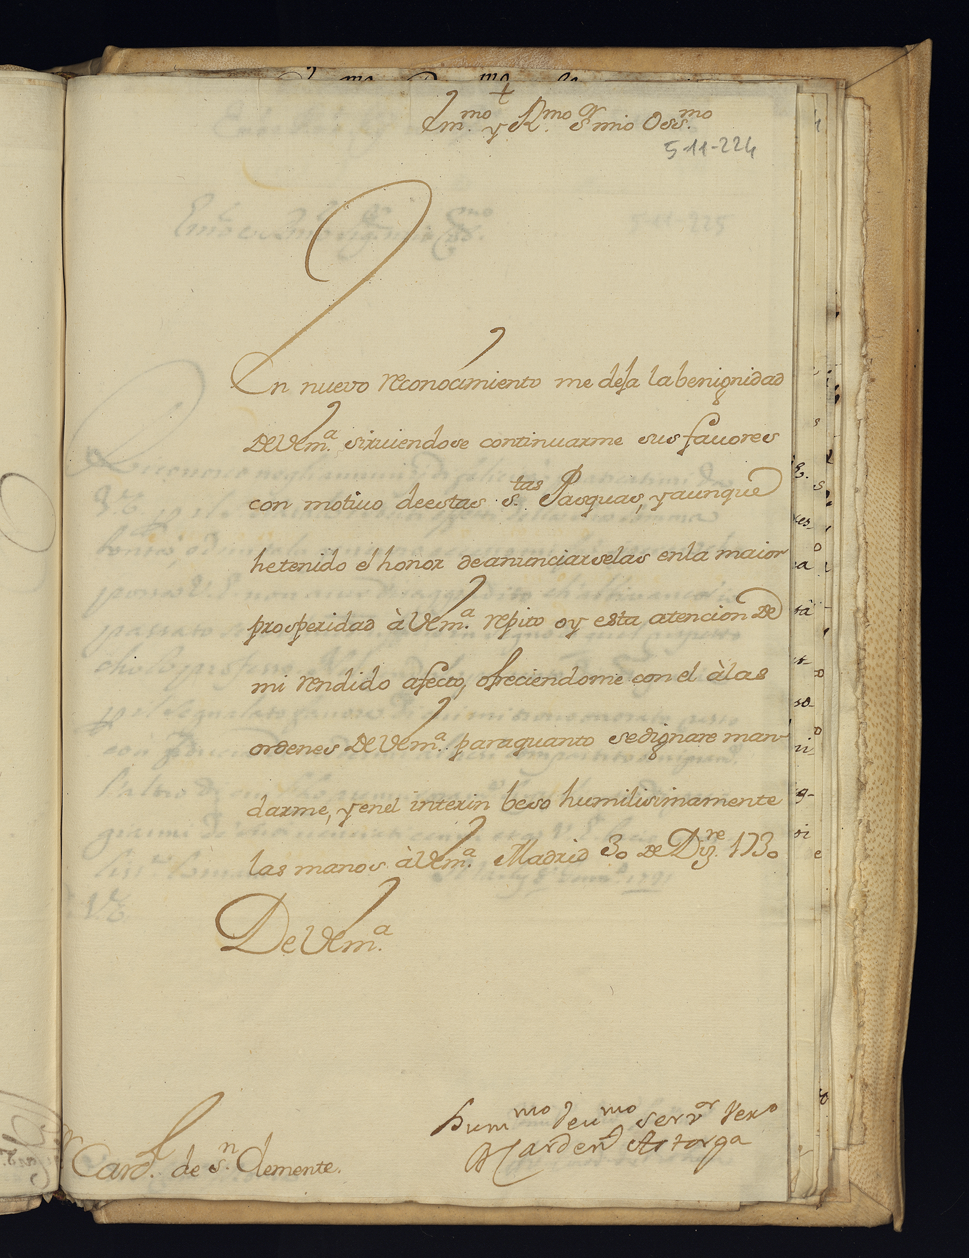 +
Em.mo y R.mo Sr mio Oss.mo
5-11-224
En nuevo reconocimiento me deja la benignidad
de VEm.a sirviendose continuarme sus favores
con motivo de estas S.tas Pasquas, y aunque
he tenido el honor de anunciarselas en la maior
prosperidad à VEm.a repito oy esta atencion de
mi rendido afecto, ofreciendome con el à las
ordenes de VEm.a para quanto se dignare man-
darme, y en el interin beso humilisimamente
las manos à VEm.a Madrid 30 de Diz.re 1730
De VEm.a
Hum.mo deu.mo serv.or
Carden.l Astorga
S.r Card.l de S.n Clemente.